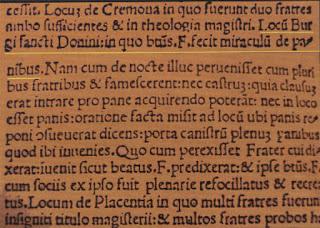 cessit. Locus de Cremona in quo fuerunt duo fratres
ambo sufficientes & in theologia magistri. Locū Bur
gi sancti Donini: in quo btūs. F. fecit miraculū de pa
nibus. Nam cum de nocte illuc peruenisset cum pluri
bus fratribus & famescerent: nec castrum: quia clausum
erat intrare pro pane acquirendo poterāt: nec in loco
esset panis: oratione facta misit ad locū ubi panis re
poni ɔsueuerat dicens: porta canistrū plenum panibus
quod ibi inuenies. Quo cum perexisset Frater cui di
xerat: iuenit sicut beatus. F. predixerat: & ipse btūs. F.
cum sociis ex ipso fuit plenarie refocillatus & recrea
tus. Locum de Placentia in quo multi fratres fuerunt
insigniti titulo magisterii: & multos fratres probos ha